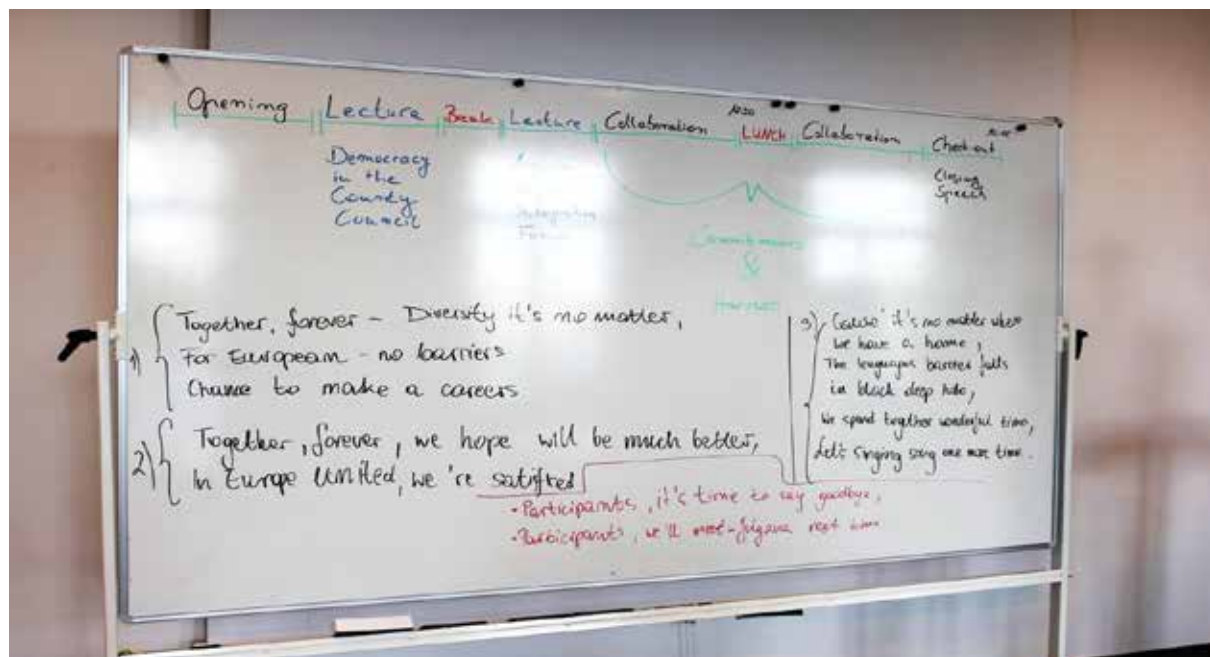 Opening Lecture Break Lecture Collaboration LUNCH Collaboration Check out
Democracy
in the
County
Council
Integration
Closing
Speech
&
Harvest
1) Together, forever - Diversity it's no matter,
For European - no barriers
Chance to make a careers
2) Together, forever, we hope will be much better,
In Europe UNited, we're satisfied
3) Cause' it's no matter where
we have a home,
The languages barrier falls
in black deep hole,
We spend together wonderful time,
Let's singing song one more time.
- Participants, it's time to say goodbye,
- Participants, we'll meet - next time